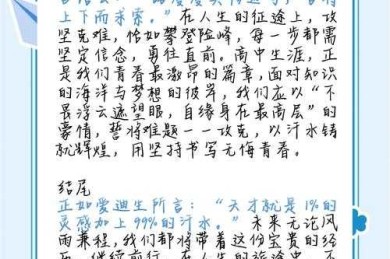 上下而求索。”在人生的征途上，攻
坚克难，恰如攀登险峰，每一步都需
坚定信念，勇往直前。高中生涯，正
是我们青春最激昂的篇章，面对知识
的海洋与梦想的彼岸，我们应以“不
畏浮云遮望眼，自缘身在最高层”的
豪情，誓将难题一一攻克，以汗水铸
就辉煌，用坚持书写无悔青春。
结尾
正如爱迪生所言：“天才就是1%的
灵感加上99%的汗水。”未来无论风
雨兼程，我们都将带着这份宝贵的经